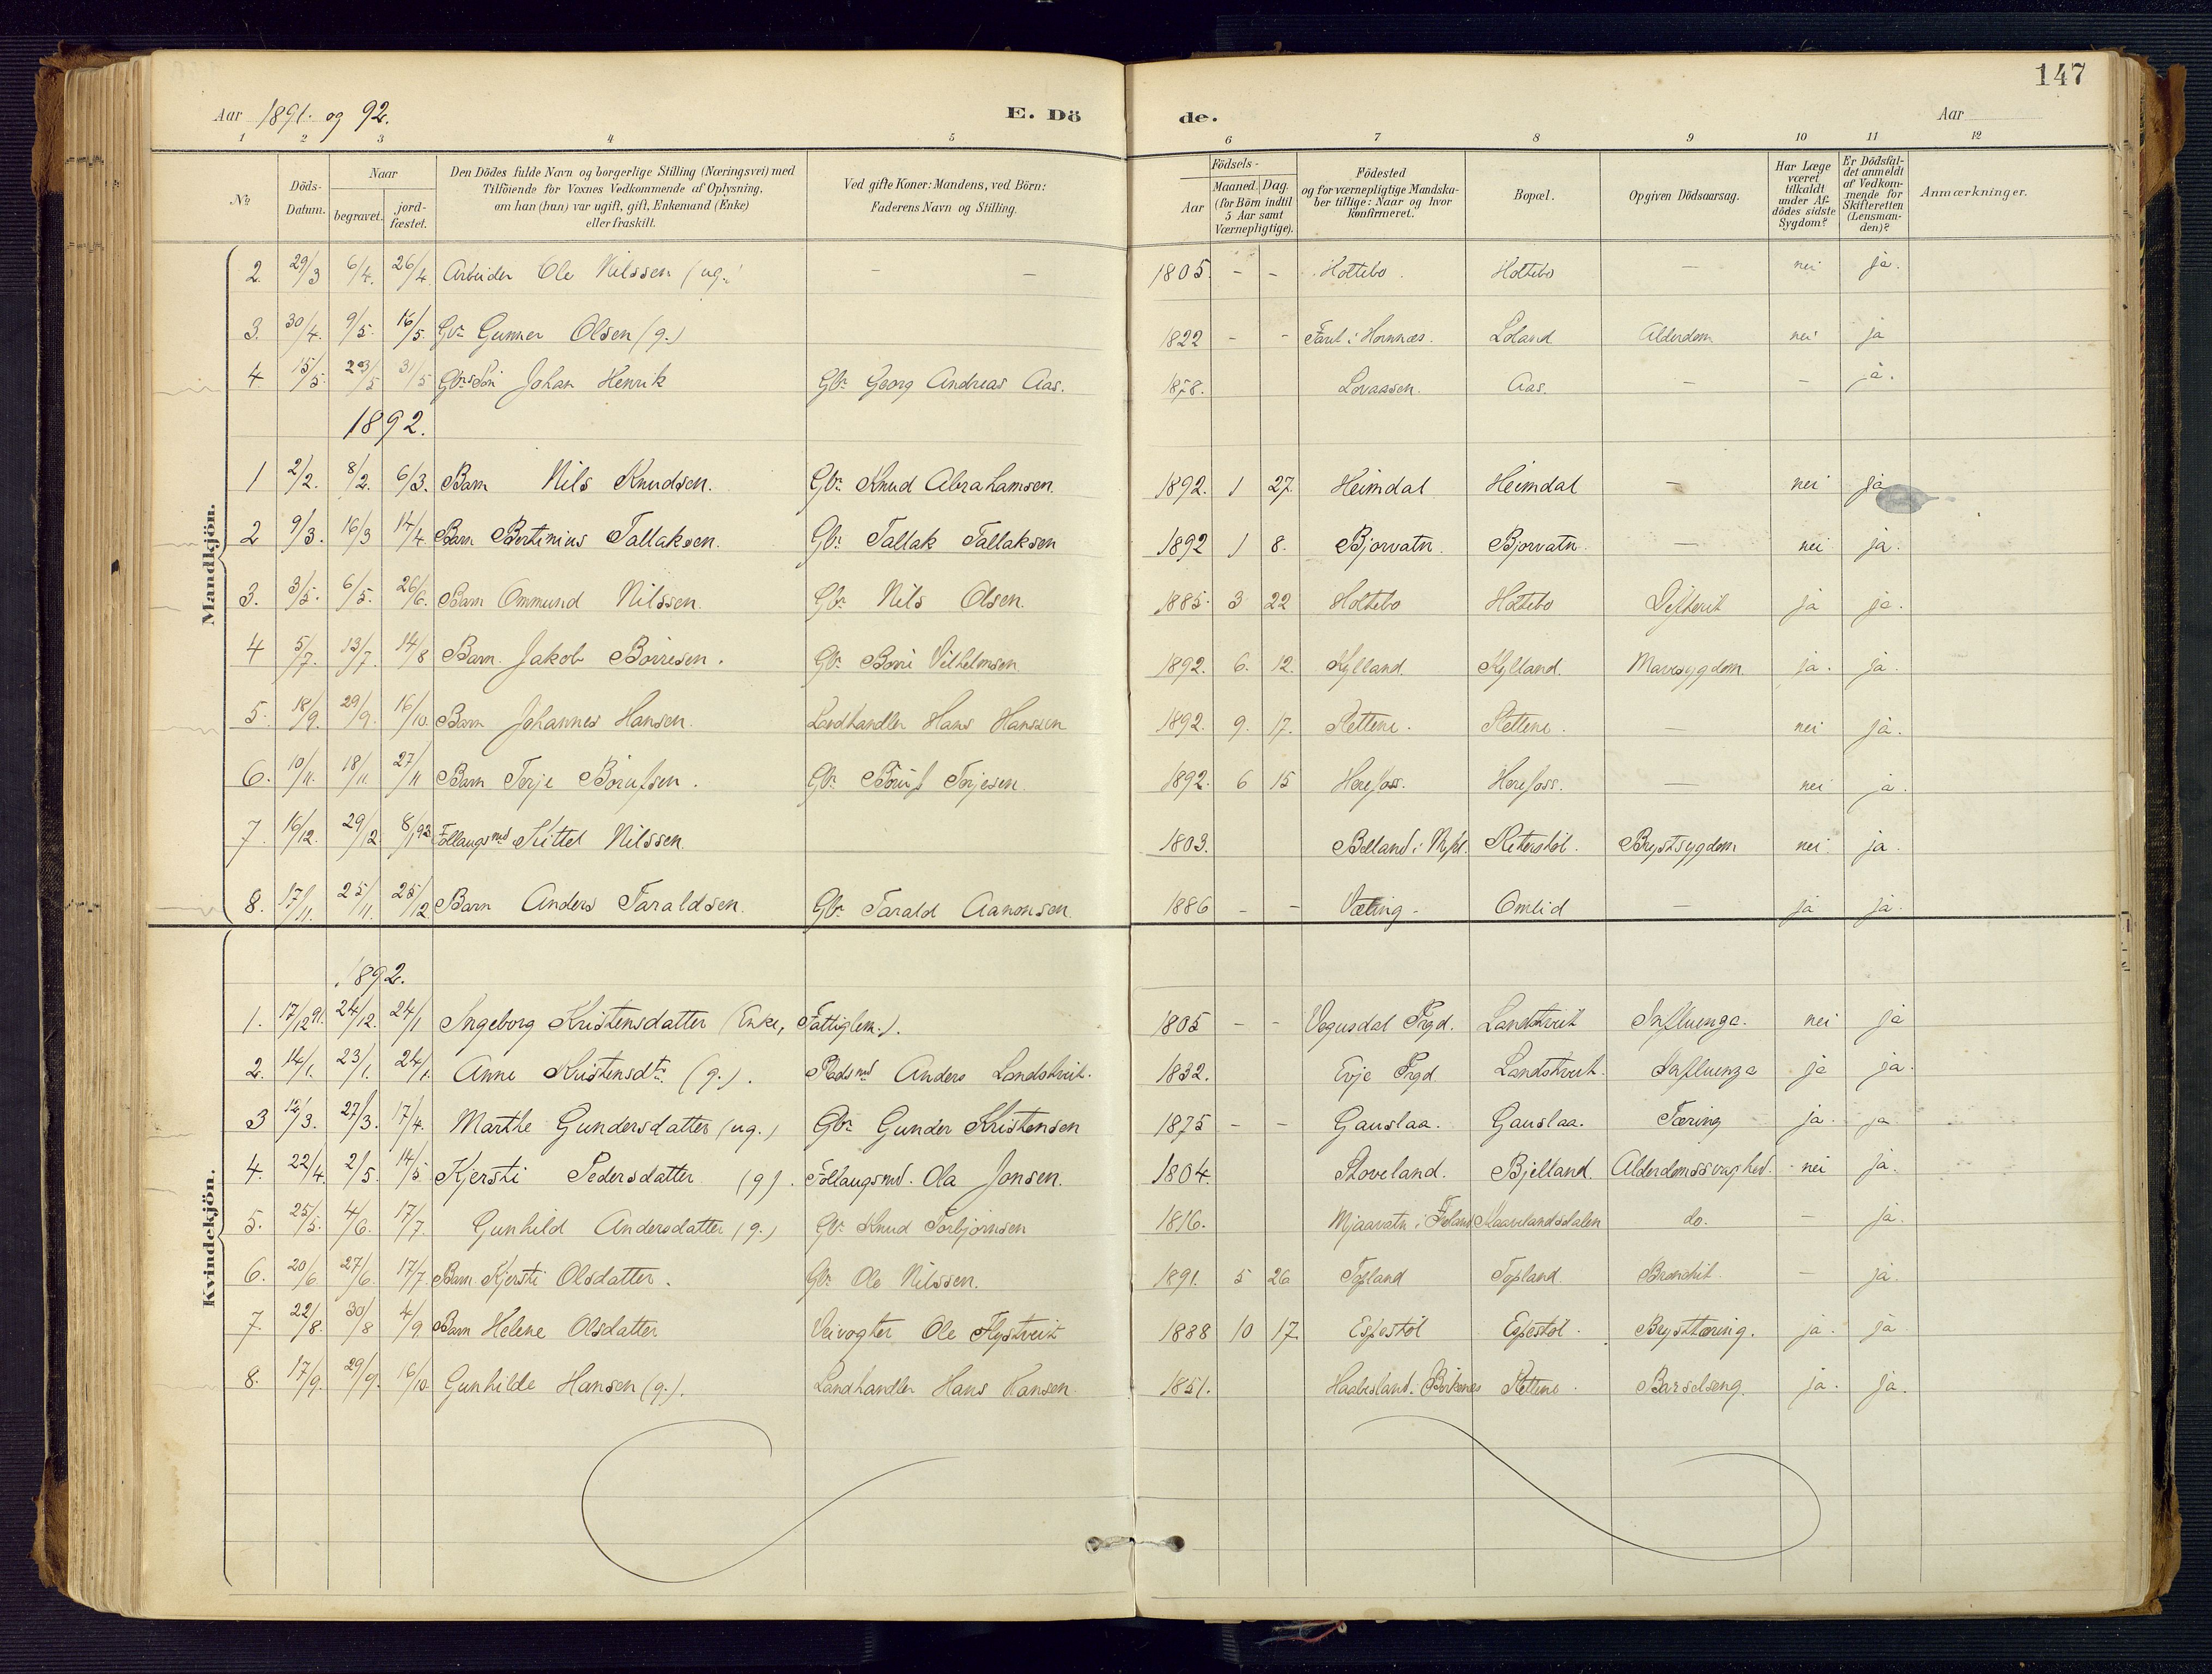 147
Aar 1891. og 92. E. Dö de. Aar
1 2 3 4 5 6 7 8 9 10 11 12
No
Döds-Datum.
Naar
begravet.
jord-fæstet.
Den Dödes fulde Navn og borgerlige Stilling (Næringsvei) med
Tilföiende for Voxnes Vedkommende af Oplysning,
om han (hun) var ugift, gift, Enkemand (Enke)
eller fraskilt.
Ved gifte Koner: Mandens, ved Börn:
Faderens Navn og Stilling.
Födsels-
Aar
Maaned. Dag.
(for Börn indtil
5 Aar samt
Værnepligtige).
Födested
og for værnepligtige Mandska-
ber tillige: Naar og hvor
konfirmeret.
Bopæl.
Opgiven Dödsaarsag.
Har Læge
været
tilkaldt
under Af-
dödes sidste
Sygdom?
Er Dödsfal-
det anmeldt
af Vedkom-
mende for
Skifteretten
(Lensman-
den)?
Anmærkninger.
Mandkjön.
2. 29/3 6/4. 26/4 Arbeider Ole Nilssen (ug.) - - 1805. - - Holtebo. Holtebo - nei ja.
3. 30/4. 9/5. 16/5. Gbr. Gunner Olsen (g.) 1822 - - Hornnæs. Loland Alderdom nei ja
4 15/5. 23/5 31/5 Gbr. Sön Johan Henrik Gbr. Georg Andreas Aas. 1878. Lovaasen. Aas. - - ja.
1892.
1 2/2. 8/2. 6/3. Barn Nils Knudsen. Gbr. Knud Abrahamsen. 1892. 1 27. Heimdal Heimdal - nei ja
2 9/3. 16/3 17/4. Barn Bertinius Tallaksen. Gbr. Tallak Tallaksen 1892 1 8. Bjorvatn. Bjorvatn. - nei ja.
3. 3/5. 6/5. 26/6. Barn Ommund Nilssen. Gbr. Nils Olsen. 1885. 3 22 Holtebo Holtebo Difterit ja ja.
4 5/7. 13/7. 14/8 Barn. Jakob Börresen. Gbr. Vilhelmsen 1892. 6. 12. Kylland. Kylland. Mavesygdom ja. ja.
5. 18/9. 29/9. 16/10. Barn Johannes Hansen. Landhandler Hans Hanssen 1892. 9. 17. Slettene. Slettene. - nei ja.
6. 10/11. 18/11 27/11 Barn Terje Börufsen. Gbr. Böruf Terjesen. 1892. 6 15 Herefoss. Herefoss. - nei ja.
7. 16/12. 29/12 8/1 93 Föllaugsmd. Kittel Nilssen. 1803. Brystsygdom nei ja.
8. 17/11. 25/11. 25/12. Barn Anders Taraldsen. Gbr. Tarald Aanonsen. 1886 - - Væting. Omlid - ja ja.
Kvindekjön.
1892.
1. 17/12 91. 24/12. 24/1 Ingeborg Kristensdatter (Enke, Fattiglem.). 1805 - - Vegusdal Prgd. Landskveit Influenza. nei ja
2. 14/1. 23/1. 24/1. Anne Kristensdtr. (g.). Pladsmd Anders Landskveit. 1832. Evje Prgd. Landskveit. Influenza ja ja.
3 12/3. 27/3. 17/4. Marthe Gundersdatter (ug.) Gbr. Gunder Kristensen 1875 - - Gauslaa. Gauslaa. Tæring ja. ja
4. 22/4. 2/5. 14/5. Kjersti Pedersdatter (g). Föllaugsmd. Ola Jonsen. 1804. Skoveland. Bjelland. Alderdomssvaghed. nei ja.
5. 25/5. 4/6. 17/7. Gunhild Andersdatter (g.) Gbr. Knud Torbjörnsen 1816. Mjaavatn i Froland Kaavelandsdalen do. - ja.
6. 20/6 27/6. 17/7. Barn Kjersti Olsdatter. Gbr. Ole Nilssen. 1891. 5 26 Topland Topland. Bronchit. - ja.
7. 22/8. 30/8 4/9. Barn Helene Olsdatter Veivogter Ole Flystveit 1888 10 17. Espestöl Espestöl. Brysttæring. ja. ja
8. 17/9. 29/9. 16/10. Gunhilde Hansen (g.). Landhandler Hans Hansen. 1851. Haabesland. Birkenes Slettene. Barselseng. ja. ja.